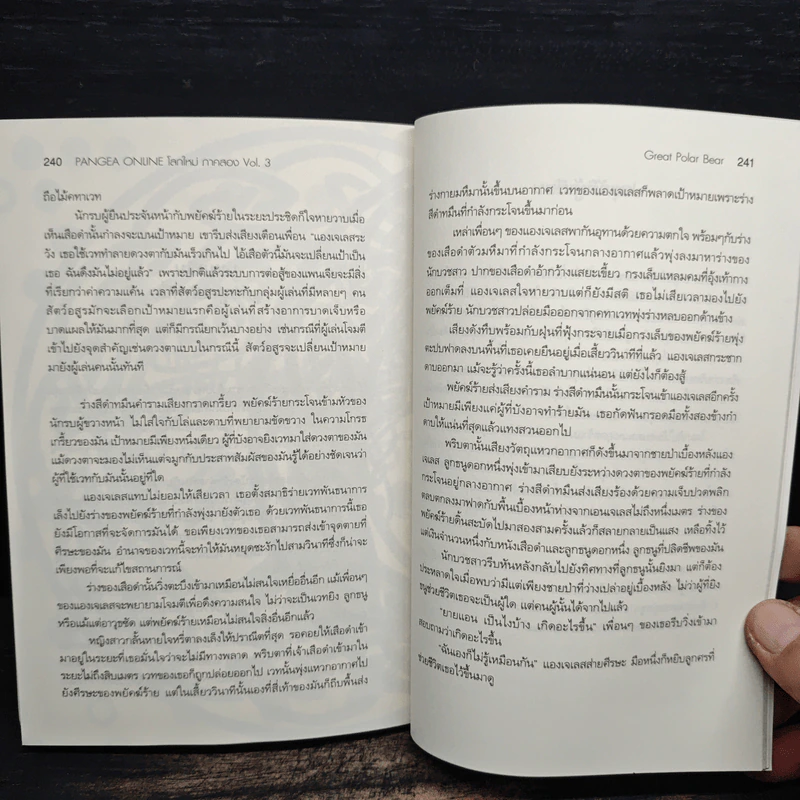 240 PANGEA ONLINE โลกใหม่ ภาคสอง Vol. 3
ถือไม้คทาเวท
นักรบผู้ยืนประจันหน้ากับพยัคฆ์ร้ายในระยะประชิดก็ใจหายวาบเมื่อ
เห็นเสือดำนั้นกำลังจะเบนเป้าหมาย เขารีบส่งเสียงเตือนเพื่อน "แองเจเลสระ
วัง เธอใช้เวททำลายดวงตากับมันเร็วเกินไป ไอ้เสือตัวนี้มันจะเปลี่ยนเป้าเป็น
เธอ ฉันดึงมันไม่อยู่แล้ว" เพราะปกติแล้วระบบการต่อสู้ของแพนเจียจะมีสิ่ง
ที่เรียกว่าค่าความแค้น เวลาที่สัตว์อสูรปะทะกับกลุ่มผู้เล่นที่มีหลายๆ คน
สัตว์อสูรมักจะเลือกเป้าหมายแรกคือผู้เล่นที่สร้างอาการบาดเจ็บหรือ
บาดแผลให้มันมากที่สุด แต่ก็มีกรณียกเว้นบางอย่าง เช่นกรณีที่ผู้เล่นโจมตี
เข้าไปยังจุดสำคัญเช่นดวงตาแบบในกรณีนี้ สัตว์อสูรจะเปลี่ยนเป้าหมาย
มายังผู้เล่นคนนั้นทันที
ร่างสีดำทมึนคำรามเสียงกราดเกรี้ยว พยัคฆ์ร้ายกระโจนข้ามหัวของ
นักรบผู้ขวางหน้า ไม่ใส่ใจกับโล่และดาบที่พยายามขัดขวาง ในความโกรธ
เกรี้ยวของมัน เป้าหมายมีเพียงหนึ่งเดียว ผู้ที่บังอาจยิงเวทมาใส่ดวงตาของมัน
แม้ดวงตาจะมองไม่เห็นแต่จมูกกับประสาทสัมผัสของมันรู้ได้อย่างชัดเจนว่า
ผู้ที่ใช้เวทกับมันนั้นอยู่ที่ใด
แองเจเลสแทบไม่ยอมให้เสียเวลา เธอตั้งสมาธิร่ายเวทพันธนาการ
เล็งไปยังร่างของพยัคฆ์ร้ายที่กำลังพุ่งมายังตัวเธอ ด้วยเวทพันธนาการนี้เธอ
ยังมีโอกาสที่จะจัดการมันได้ ขอเพียงเวทของเธอสามารถส่งเข้าจุดตายที่
ศีรษะของมัน อำนาจของเวทนี้จะทำให้มันหยุดชะงักไปสามวินาทีซึ่งก็น่าจะ
เพียงพอที่จะแก้ไขสถานการณ์
ร่างของเสือดำนั้นวิ่งตะบึงเข้ามาเหมือนไม่สนใจเหยื่ออื่นอีก แม้เพื่อนๆ
ของแองเจเลสจะพยายามโจมตีเพื่อดึงความสนใจ ไม่ว่าจะเป็นเวทยิง ลูกธนู
หรือแม้แต่อาวุธซัด แต่พยัคฆ์ร้ายเหมือนไม่สนใจสิ่งอื่นอีกแล้ว
หญิงสาวกลั้นหายใจหรี่ตาลงเล็งให้ปราณีตที่สุด รอคอยให้เสือดำเข้า
มาอยู่ในระยะที่เธอมั่นใจว่าจะไม่มีทางพลาด พริบตาที่เจ้าเสือดำเข้ามาใน
ระยะไม่ถึงสิบเมตร เวทของเธอก็ถูกปล่อยออกไป เวทนั้นพุ่งแหวกอากาศไป
ยังศีรษะของพยัคฆ์ร้าย แต่ในเสี้ยววินาทีนั้นเองที่สี่เท้าของมันก็ถีบพื้นส่ง
Great Polar Bear 241
ร่างกายมหึมานั้นขึ้นบนอากาศ เวทของแองเจเลสก็พลาดเป้าหมายเพราะร่าง
สีดำทมึนที่กำลังกระโจนขึ้นมาก่อน
เหล่าเพื่อนๆ ของแองเจเลสพากันอุทานด้วยความตกใจ พร้อมๆกับร่าง
ของเสือดำตัวมหึมาที่กำลังกระโจนกลางอากาศแล้วพุ่งลงมาหาร่างของ
นักบวชสาว ปากของเสือดำอ้ากว้างแสยะเขี้ยว กรงเล็บแหลมคมที่อุ้งเท้ากาง
ออกเต็มที่ แองเจเลสใจหายวาบแต่ก็ยังมีสติ เธอไม่เสียเวลามองไปยัง
พยัคฆ์ร้าย นักบวชสาวปล่อยมือออกจากคทาเวทพุ่งร่างหลบออกด้านข้าง
เสียงดังทึบพร้อมกับฝุ่นที่ฟุ้งกระจายเมื่อกรงเล็บของพยัคฆ์ร้ายพุ่ง
ตะปบฟาดลงบนพื้นที่เธอเคยยืนอยู่เมื่อเสี้ยววินาทีที่แล้ว แองเจเลสกระชาก
ดาบออกมา แม้จะรู้ว่าครั้งนี้เธอลำบากแน่นอน แต่ยังไงก็ต้องสู้
พยัคฆ์ร้ายส่งเสียงคำราม ร่างสีดำทมึนนั้นกระโจนเข้าแองเจเลสอีกครั้ง
เป้าหมายมีเพียงแค่ผู้ที่บังอาจทำร้ายมัน เธอกัดฟันกรอดมือทั้งสองข้างกำ
ดาบให้แน่นที่สุดแล้วแทงสวนออกไป
พริบตานั้นเสียงวัตถุแหวกอากาศก็ดังขึ้นมาจากชายป่าเบื้องหลังแอง
เจเลส ลูกธนูดอกหนึ่งพุ่งเข้ามาเสียบยังระหว่างดวงตาของพยัคฆ์ร้ายที่กำลัง
กระโจนอยู่กลางอากาศ ร่างสีดำทมึนส่งเสียงร้องด้วยความเจ็บปวดพลิก
ตลบตกลงมาฟาดกับพื้นเบื้องหน้าห่างจากเอนเจเลสไม่ถึงหนึ่งเมตร ร่างของ
พยัคฆ์ร้ายดิ้นสะบัดไปมาสองสามครั้งแล้วก็สลายกลายเป็นแสง เหลือทิ้งไว้
แต่เงินจำนวนหนึ่งกับหนังเสือดำและลูกธนูดอกหนึ่ง ลูกธนูที่ปลิดชีพของมัน
นักบวชสาวรีบหันหลังกลับไปยังทิศทางที่ลูกธนูนั้นยิงมา แต่ก็ต้อง
ประหลาดใจเมื่อพบว่ามีแต่เพียงชายป่าที่ว่างเปล่าอยู่เบื้องหลัง ไม่ว่าผู้ที่ยิง
ธนูช่วยชีวิตเธอจะเป็นผู้ใด แต่คนผู้นั้นได้จากไปแล้ว
"ยายแอน เป็นไงบ้าง เกิดอะไรขึ้น" เพื่อนๆ ของเธอรีบวิ่งเข้ามา
สอบถามว่าเกิดอะไรขึ้น
"ฉันเองก็ไม่รู้เหมือนกัน" แองเจเลสส่ายศีรษะ มือหนึ่งก็หยิบลูกศรที่
ช่วยชีวิตเธอไว้ขึ้นมาดู